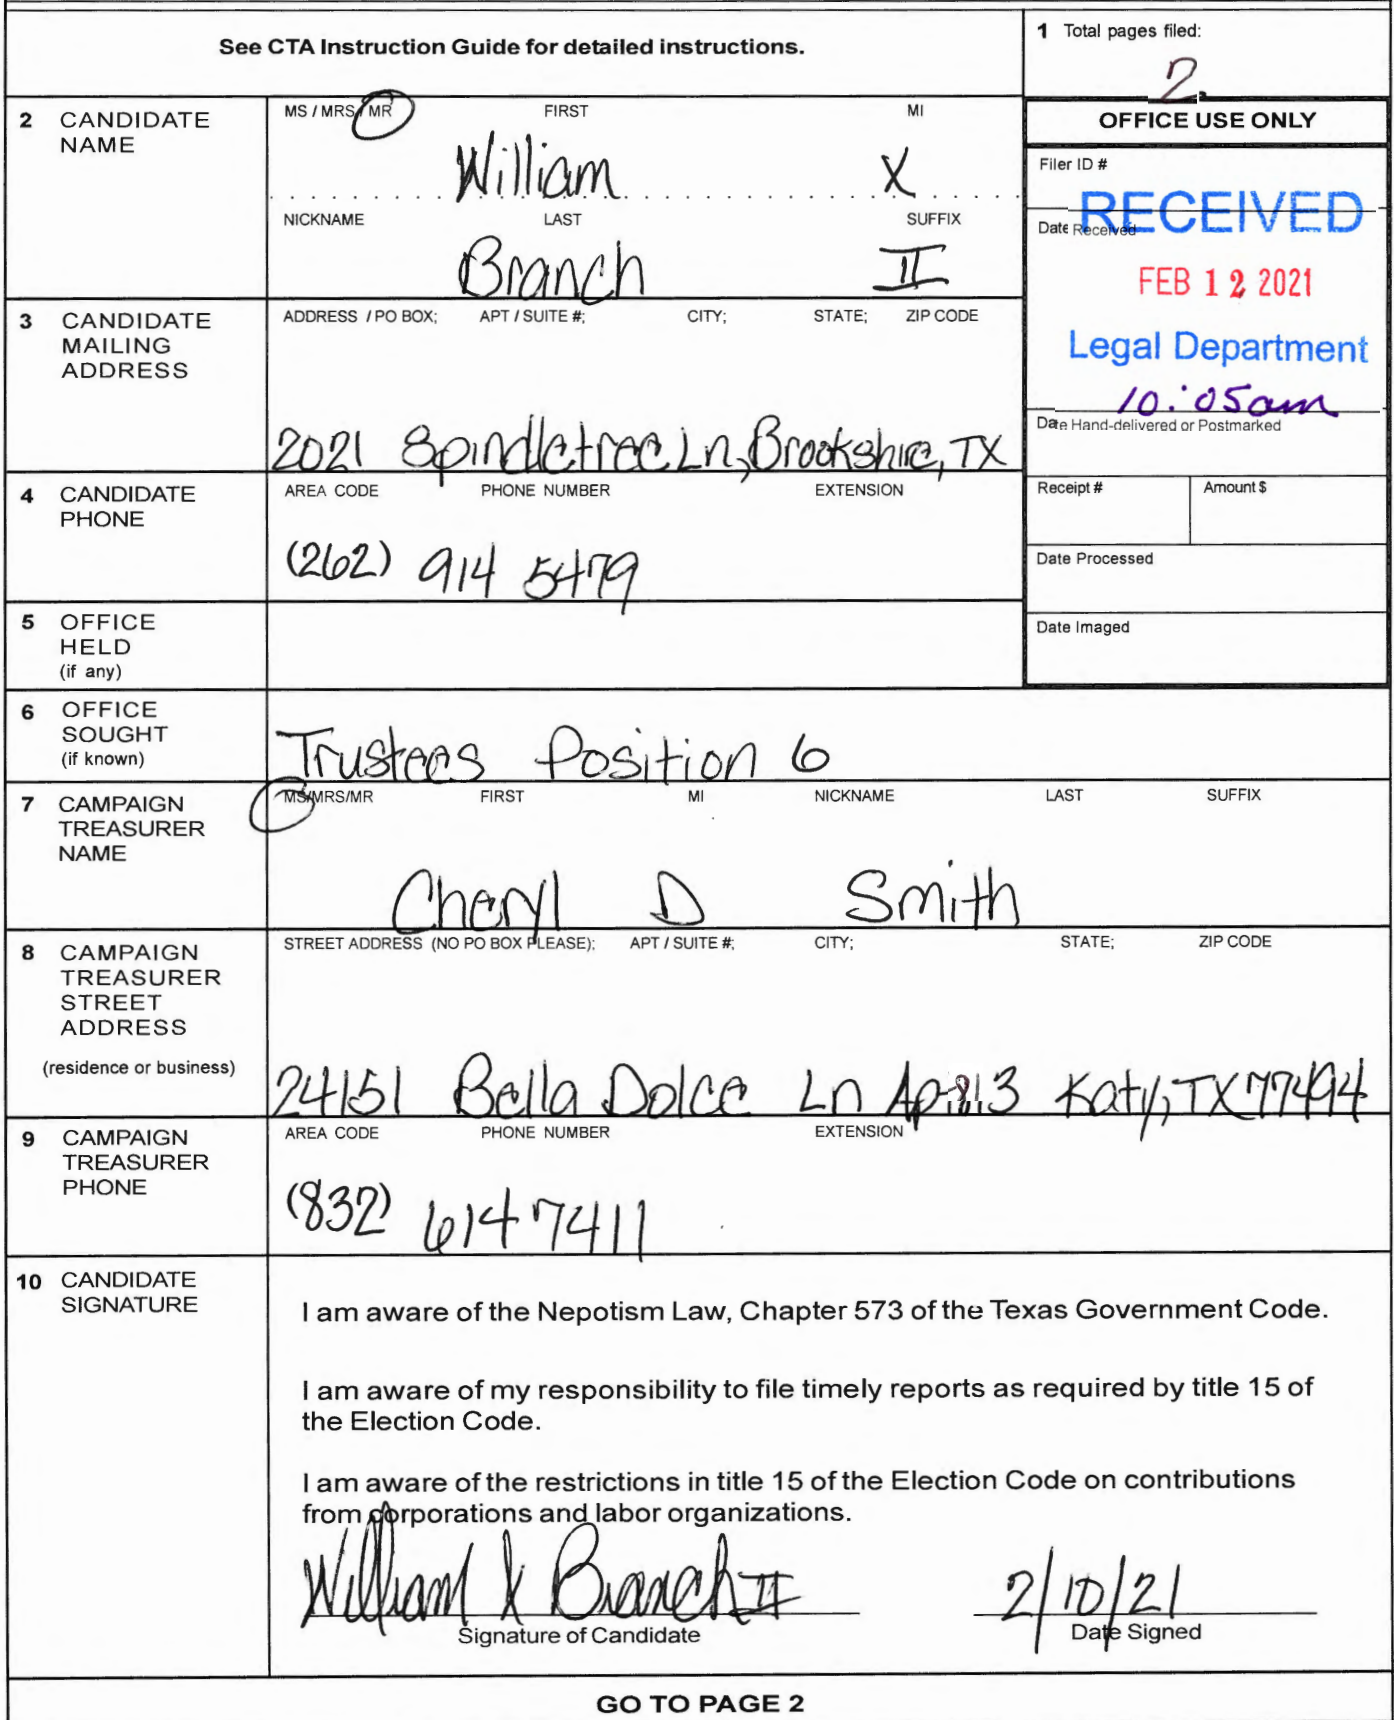 See CTA Instruction Guide for detailed instructions.
1 Total pages filed:
2
2 CANDIDATE NAME
MS / MRS / MR FIRST MI
William X
NICKNAME LAST SUFFIX
Branch II
OFFICE USE ONLY
Filer ID #
RECEIVED
Date Received
FEB 12 2021
Legal Department
10:05am
Date Hand-delivered or Postmarked
Receipt # Amount $
Date Processed
Date Imaged
3 CANDIDATE MAILING ADDRESS
ADDRESS / PO BOX; APT / SUITE #; CITY; STATE; ZIP CODE
2021 Spindletree Ln, Brookshire, TX
4 CANDIDATE PHONE
AREA CODE PHONE NUMBER EXTENSION
(262) 914 5479
5 OFFICE HELD (if any)
6 OFFICE SOUGHT (if known)
Trustees Position 6
7 CAMPAIGN TREASURER NAME
MS/MRS/MR FIRST MI NICKNAME LAST SUFFIX
Cheryl D Smith
8 CAMPAIGN TREASURER STREET ADDRESS
(residence or business)
STREET ADDRESS (NO PO BOX PLEASE); APT / SUITE #; CITY; STATE; ZIP CODE
24151 Bella Dolce Ln Katy, TX 77494
9 CAMPAIGN TREASURER PHONE
AREA CODE PHONE NUMBER EXTENSION
(832) 614 7411
10 CANDIDATE SIGNATURE
I am aware of the Nepotism Law, Chapter 573 of the Texas Government Code.
I am aware of my responsibility to file timely reports as required by title 15 of
the Election Code.
I am aware of the restrictions in title 15 of the Election Code on contributions
from corporations and labor organizations.
William X Branch II 2/10/21
Signature of Candidate Date Signed
GO TO PAGE 2